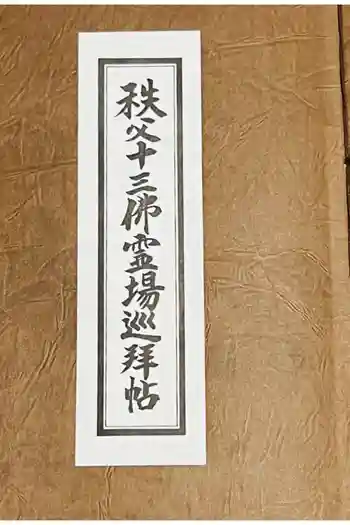 秩父十三佛霊場巡拜帖